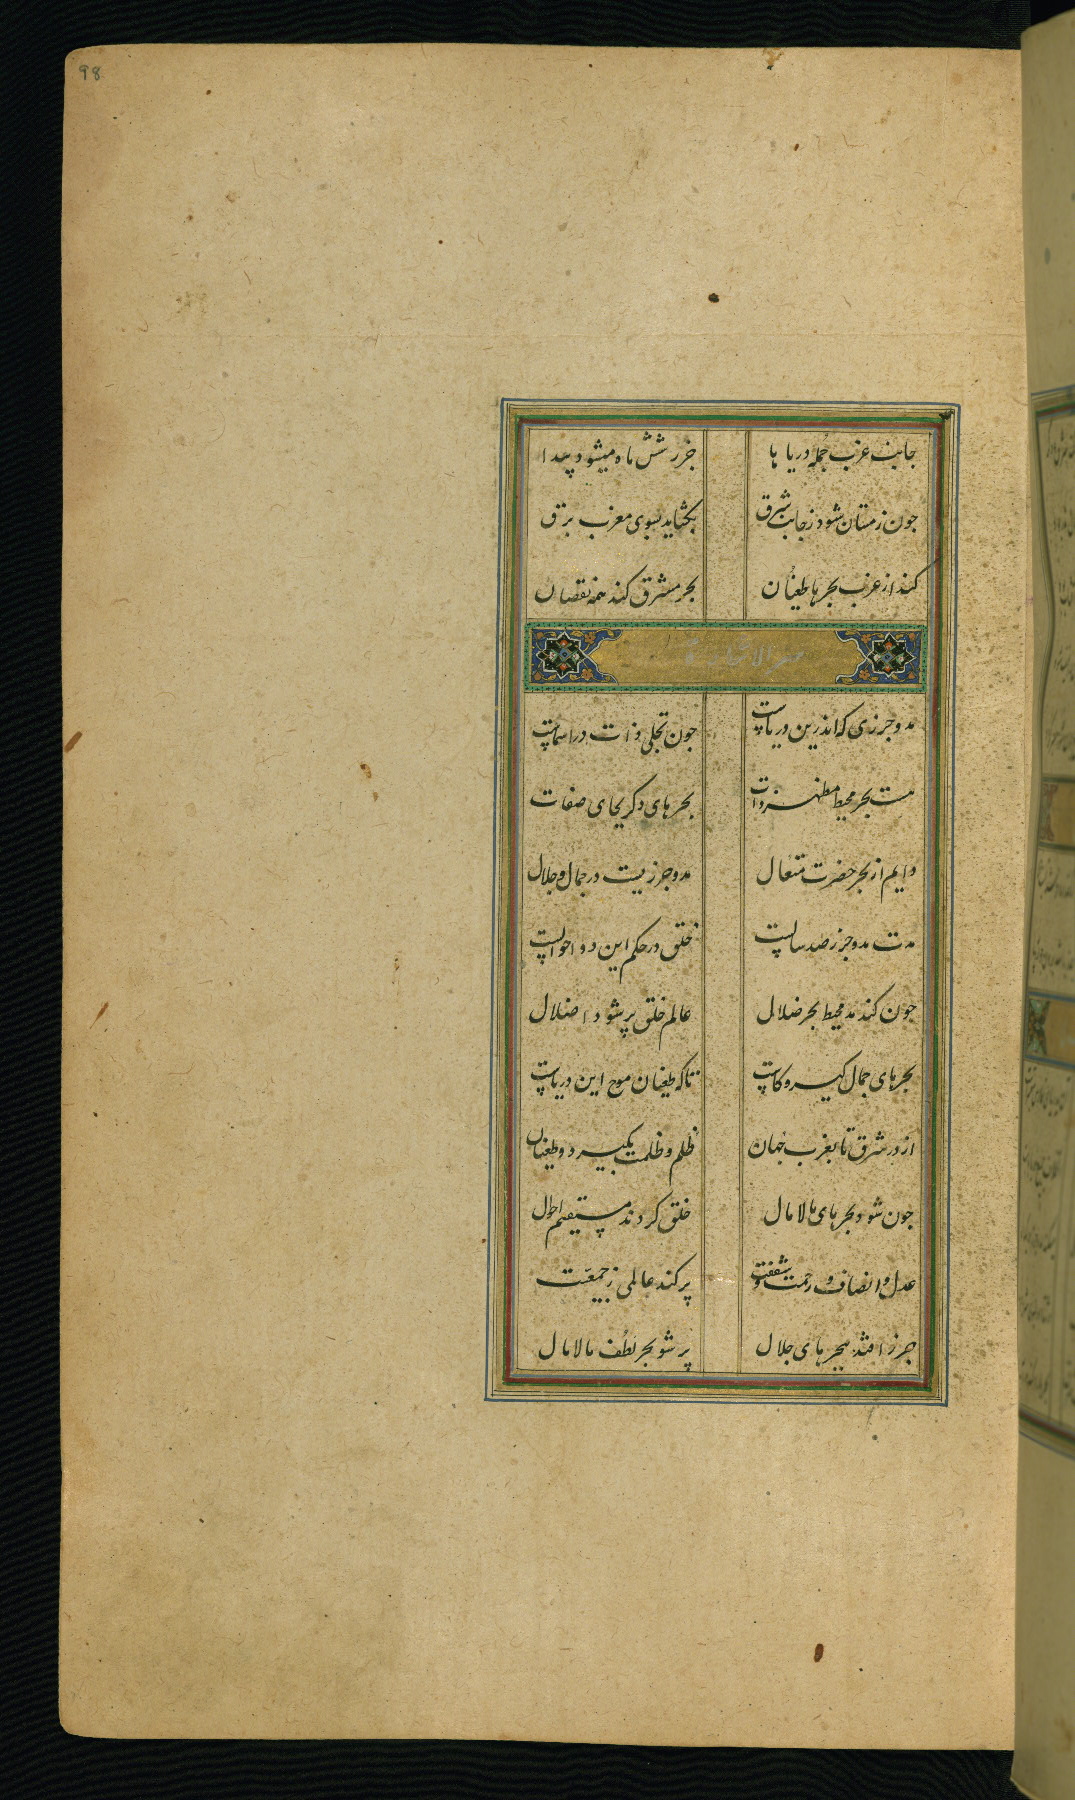 98
جانب غرب جمله دریا ها جزر شش ماه میشود پیدا
جون زمستان شود ز جانب شرق بکشاید بسوی مغرب برق
کند از غرب بحرها طغیان بحر مشرق کند همه نقصان
مد و جزری که اندرین دریاست جون تجلی ذات در اسماست
هست بحر محیط مظهر ذات بحرهای دکر بجای صفات
دایم از بحر حضرت متعال مد و جزریست در جمال و جلال
مدت مد و جزر صد سالست خلق در حکم این دو احوالست
جون کند مد محیط بحر ضلال عالم خلق پر شود اضلال
بحرهای جمال کیرد کاست تا که طغیان موج این دریاست
از در شرق تا بغرب جهان ظلم و ظلمت بکیرد و طغیان
جون شود بحرهای مالامال خلق کردند مستقیم احوال
عدل و انصاف و رحمت و شفقت پر کند عالمی ز جمعیت
جزر افتد ببحرهای جلال پر شو بحر لطف مالامال